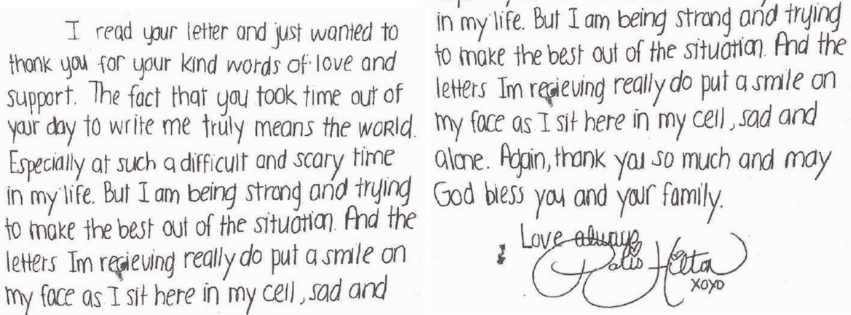 I read your letter and just wanted to
thank you for your kind words of love and
support. The fact that you took time out of
your day to write me truly means the world.
Especially at such a difficult and scary time
in my life. But I am being strong and trying
to make the best out of the situation. And the
letters Im recieving really do put a smile on
my face as I sit here in my cell, sad and
in my life. But I am being strong and trying
to make the best out of the situation. And the
letters Im recieving really do put a smile on
my face as I sit here in my cell, sad and
alone. Again, thank you so much and may
God bless you and your family.
Love always
Paris Hilton
xoxo